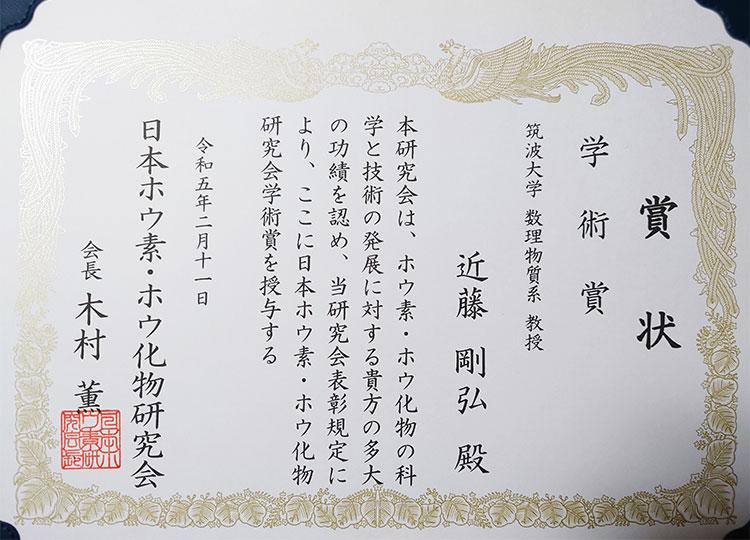 賞状
学術賞
筑波大学 数理物質系 教授
近藤 剛弘 殿
本研究会は、ホウ素・ホウ化物の科
学と技術の発展に対する貴方の多大
の功績を認め、当研究会表彰規定に
より、ここに日本ホウ素・ホウ化物
研究会学術賞を授与する
令和五年二月十一日
日本ホウ素・ホウ化物研究会
会長 木村 薫